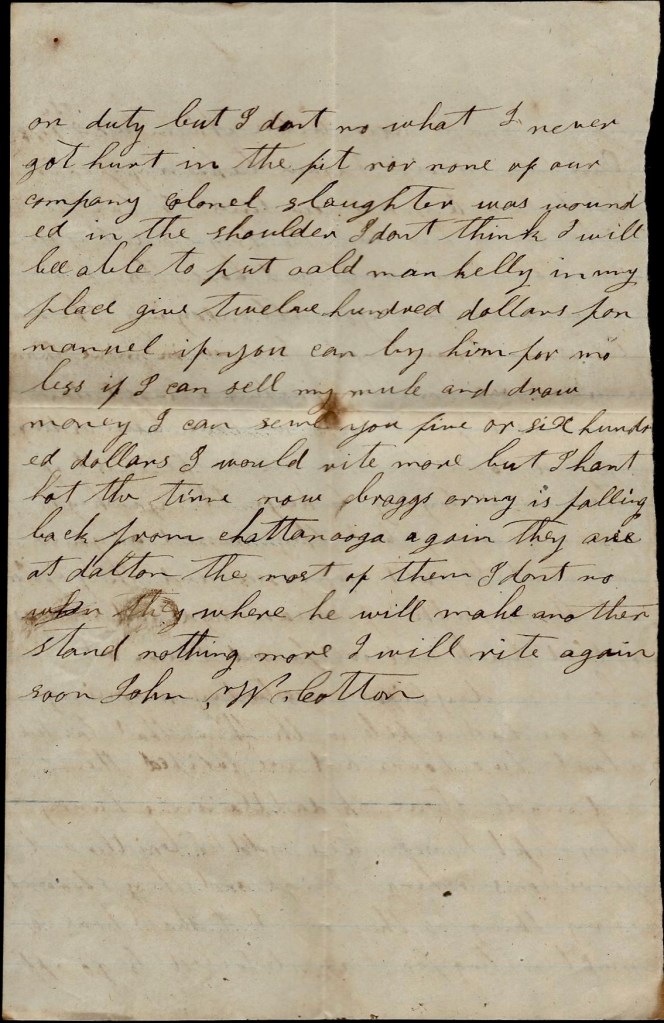 on duty but I dont no what I never
got hurt in the fit nor none of our
company colonel slaughter was wound
ed in the shoulder I dont think I will
bee able to put oald man kelly in my
place give twelve hundred dollars for
manuel if you can by him for no
less if I can sell my mule and draw
money I can send you five or six hundr
ed dollars I would rite more but I hant
got the time now braggs army is falling
back from chattanooga again they are
at dalton the most of them I dont no
where he will make another
stand nothing more I will rite again
soon John W. Cotton